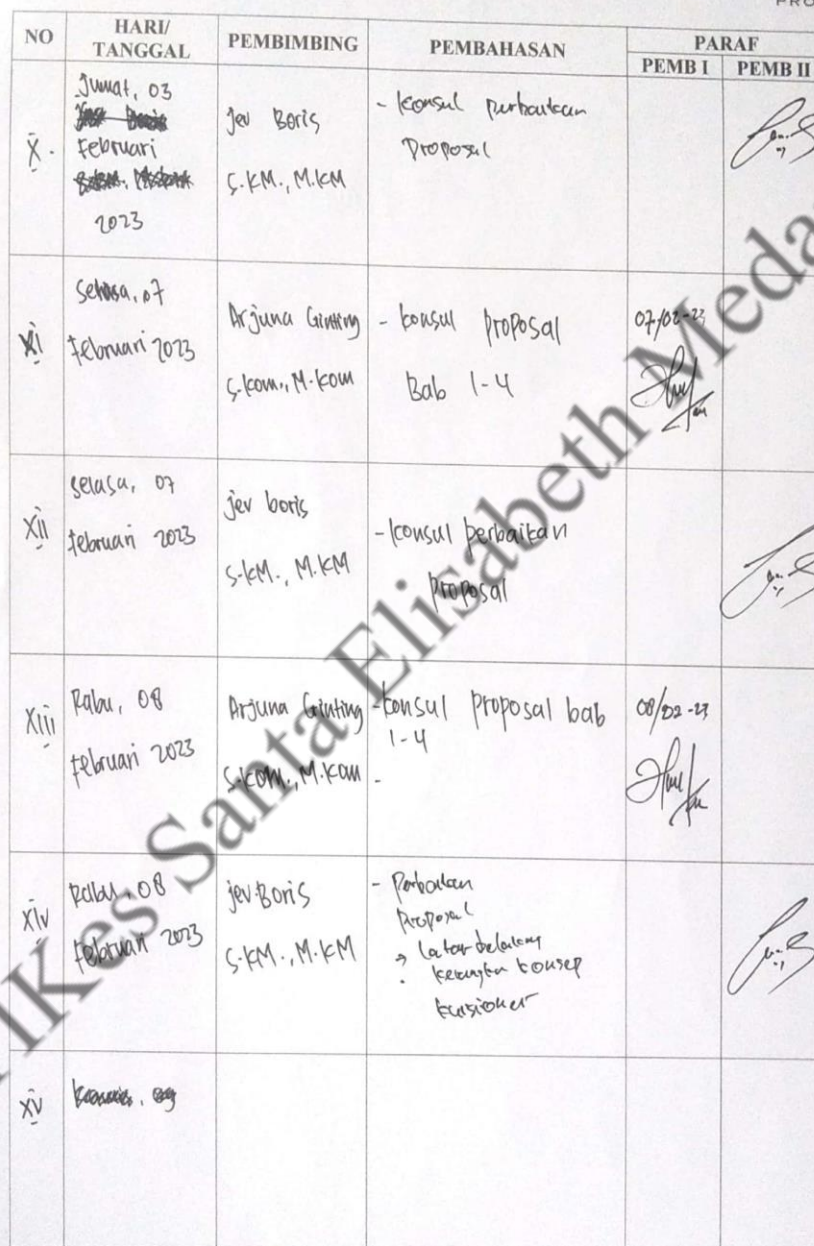 PRO
NO HARI/ TANGGAL PEMBIMBING PEMBAHASAN PARAF
PEMB I PEMB II
X. Jumat, 03
Februari
2023
Jev Boris
S.KM., M.KM
- konsul perbaikan
proposal
XI Selasa, 07
Februari 2023
Arjuna Ginting
S.kom., M.kom
- konsul proposal
Bab 1-4
07/02-23
XII selasa, 07
februari 2023
jev boris
S.KM., M.KM
- konsul perbaikan
proposal
XIII Rabu, 08
februari 2023
Arjuna Ginting
S.kom., M.kom
- konsul proposal bab
1-4
-
08/02-23
XIV Rabu, 08
februari 2023
jev.Boris
S.KM., M.KM
- Perbaikan
proposal
→ latar belakang
. kerangka konsep
kuisioner
XV
IKes Santa Elisabeth Meda